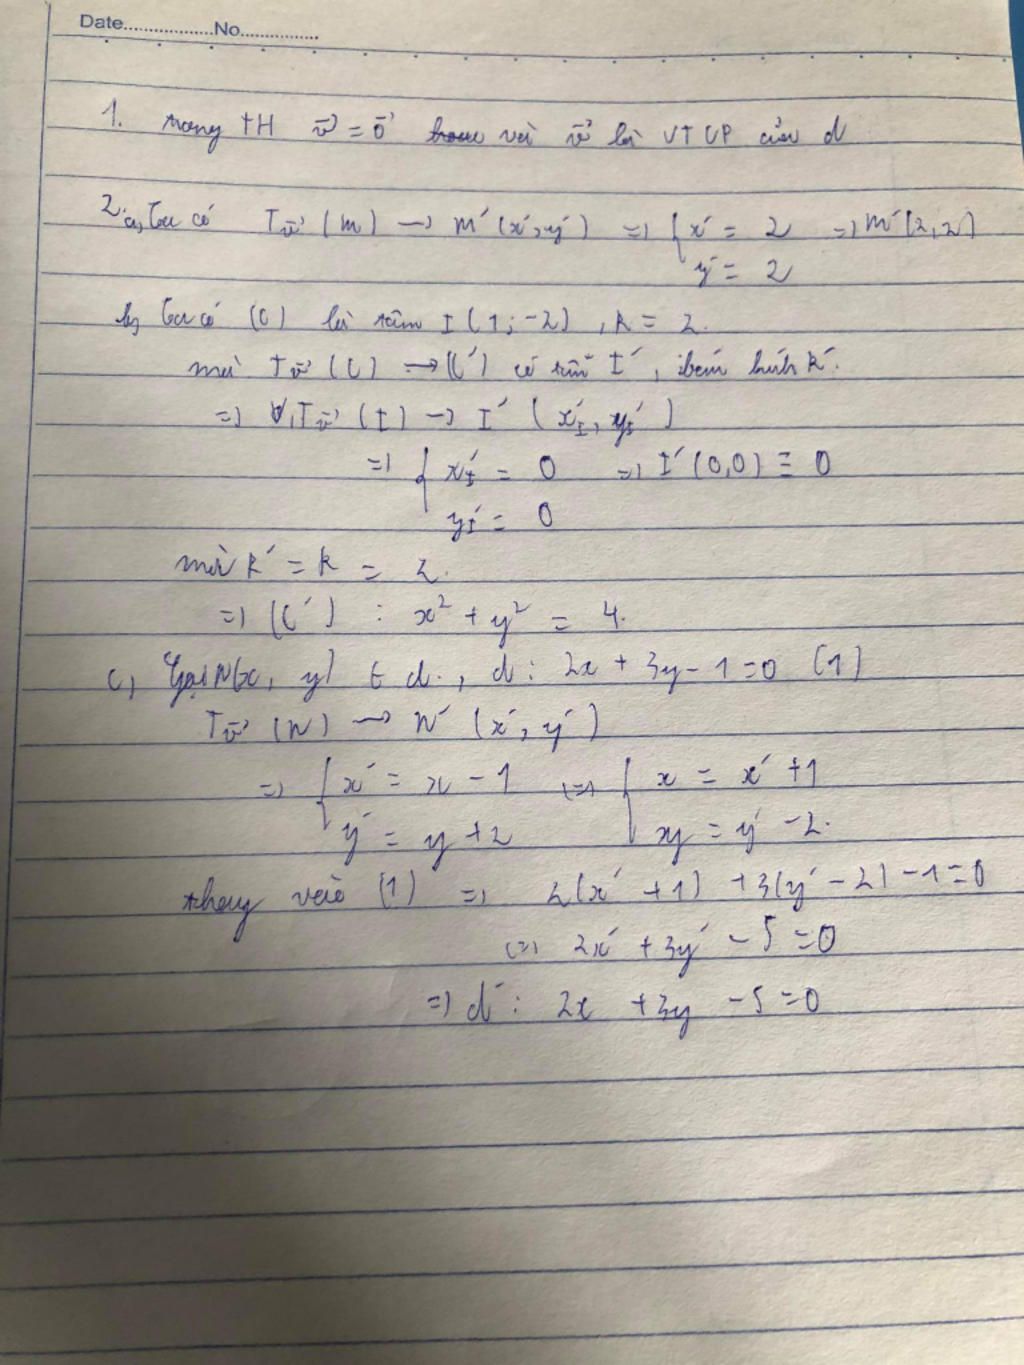 Date.................No...............
1. trong TH v⃗ = 0⃗ và v⃗ là VTCP của d
2. a, Ta có T_v⃗ (M) → M' (x', y') => { x' = 2 => M'(2,2)
y' = 2
b, Ta có (C) là tâm I (1; -2), R = 2.
mà T_v⃗ (C) → (C') có tâm I', bán kính R'.
=> T_v⃗ (I) → I' (x'_I, y'_I)
=> { x'_I = 0 => I' (0,0) ≡ O
y'_I = 0
mà R' = R = 2.
=> (C') : x² + y² = 4.
c, Gọi N(x, y) ∈ d., d: 2x + 3y - 1 = 0 (1)
T_v⃗ (N) → N' (x', y')
=> { x' = x - 1 <=> { x = x' + 1
y' = y + 2 xy = y' - 2.
thay vào (1) => 2(x' + 1) + 3(y' - 2) - 1 = 0
<=> 2x' + 3y' - 5 = 0
=> d' : 2x + 3y - 5 = 0